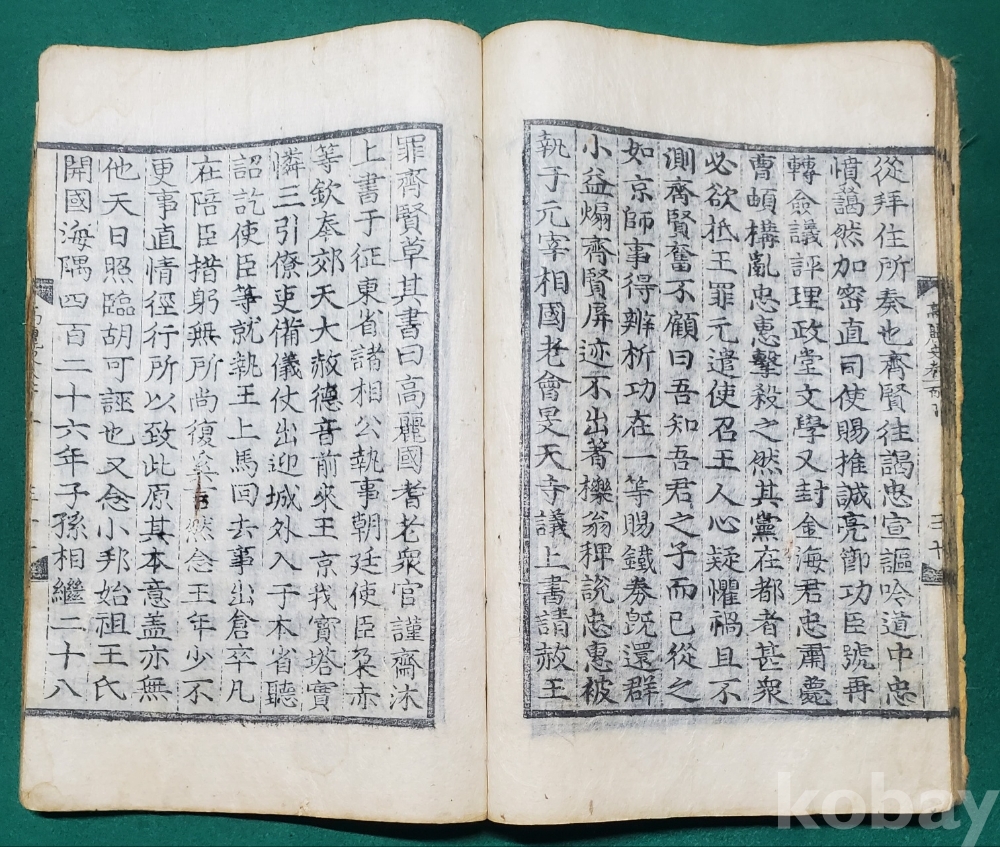 從拜住所奏也齊賢往謁忠宣謳吟道中忠
憤藹然加密直司使賜推誠亮節功臣號再
轉僉議評理政堂文學又封金海君忠肅薨
曹頔構亂忠惠擊殺之然其黨在都者甚衆
必欲抵王罪元遣使召王人心疑懼禍且不
測齊賢奮不顧曰吾知吾君之子而已從之
如京師事得辨析功在一等賜鐵券旣還群
小益煽齊賢屏迹不出著櫟翁稗說忠惠被
執于元宰相國老會旻天寺議上書請赦王
罪齊賢草其書曰高麗國耆老衆官謹齋沐
上書于征東省諸相公執事朝廷使臣朶赤
等欽奉郊天大赦德音前來王京我寶塔實
憐三引僚吏備儀仗出迎城外入于本省聽
詔訖使臣等就執王上馬回去事出倉卒凡
在陪臣措躬無所尚復奚言然念王年少不
更事直情徑行所以致此原其本意盖亦無
他天日照臨胡可誣也又念小邦始祖王氏
開國海隅四百二十六年子孫相繼二十八
kobay